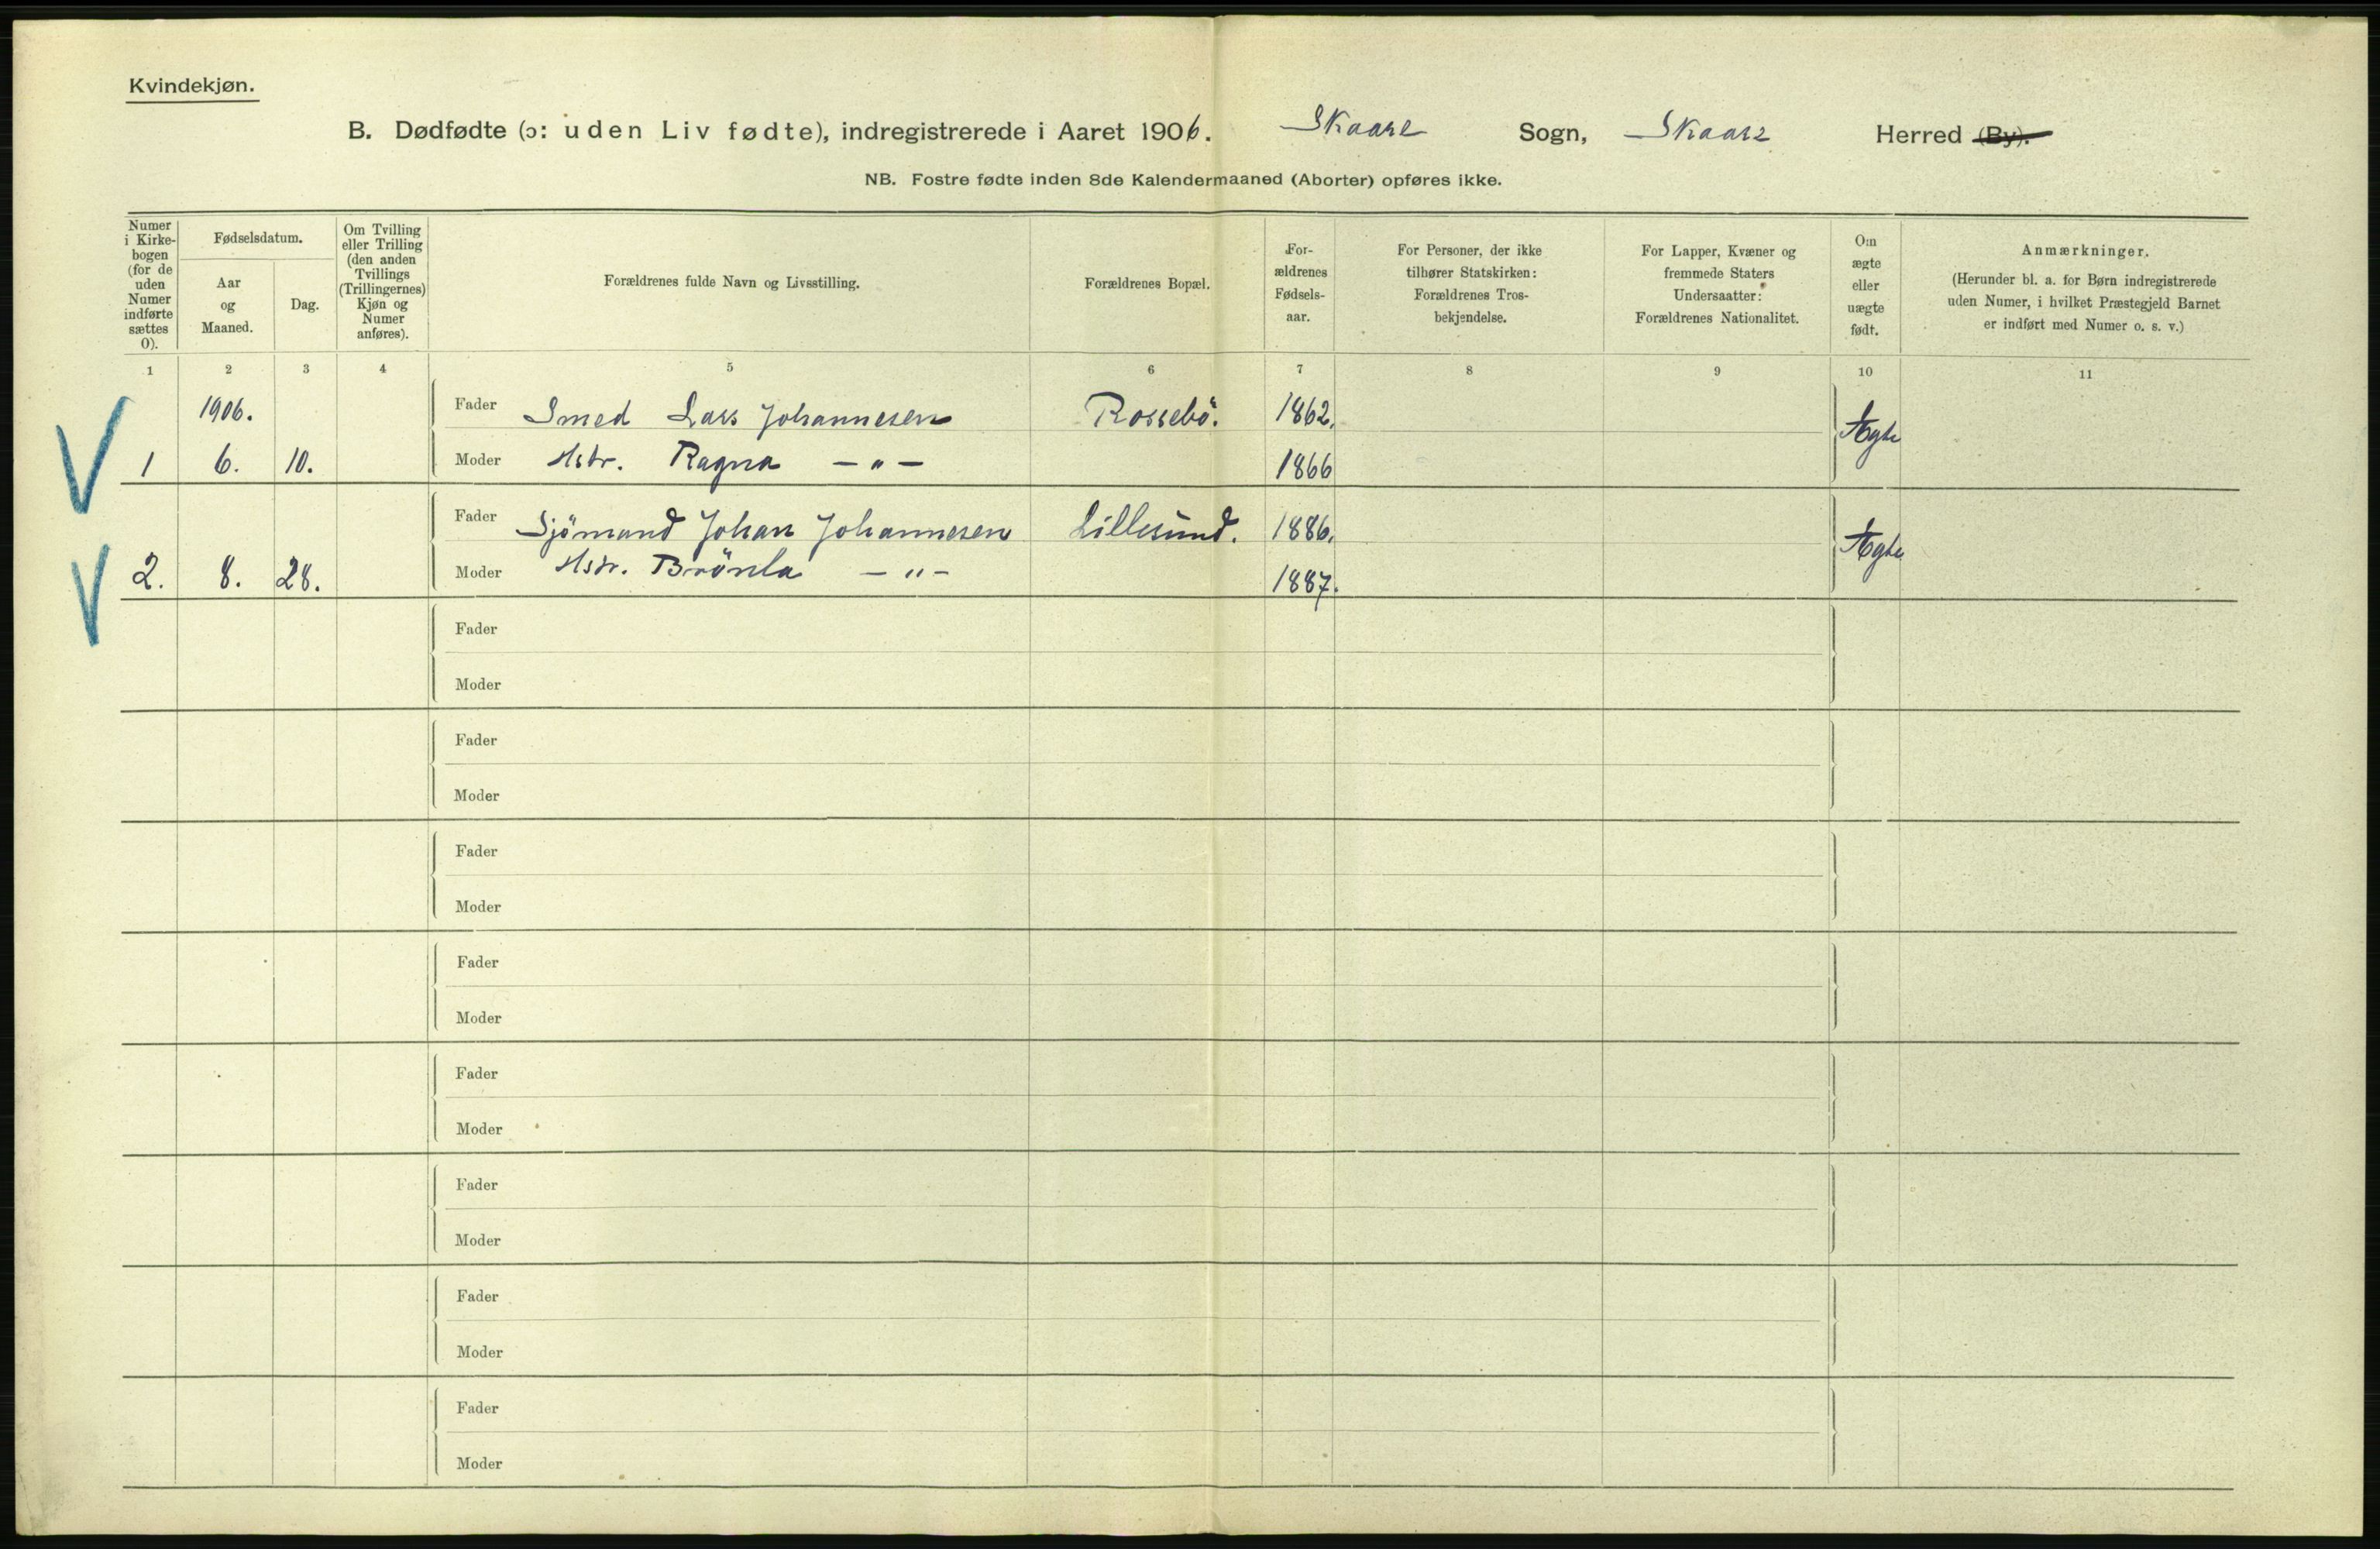 Kvindekjøn.
B. Dødfødte (ɔ: uden Liv fødte), indregistrerede i Aaret 1906. Skaare Sogn, Skaare Herred (By).
NB. Fostre fødte inden 8de Kalendermaaned (Aborter) opføres ikke.
Numer i Kirke-
bogen
(for de
uden
Numer
indførte
sættes
0).
Fødselsdatum.
Aar
og
Maaned.
Dag.
Om Tvilling
eller Trilling
(den anden
Tvillings
(Trillingernes)
Kjøn og
Numer
anføres).
Forældrenes fulde Navn og Livsstilling.
Forældrenes Bopæl.
For-
ældrenes
Fødsels-
aar.
For Personer, der ikke
tilhører Statskirken:
Forældrenes Tros-
bekjendelse.
For Lapper, Kvæner og
fremmede Staters
Undersaatter:
Forældrenes Nationalitet.
Om
ægte
eller
uægte
født.
Anmærkninger.
(Herunder bl. a. for Børn indregistrerede
uden Numer, i hvilket Præstegjeld Barnet
er indført med Numer o. s. v.)
1 2 3 4 5 6 7 8 9 10 11
1906. Fader Smed Lars Johannesen Rossebö. 1862. Ægte
1 6. 10. Moder Hstr. Ragna — " — 1866
Fader Sjömand Johan Johannesen Lillesund. 1886. Ægte
2. 8. 28. Moder Hstr. — " — 1887.
Fader
Moder
Fader
Moder
Fader
Moder
Fader
Moder
Fader
Moder
Fader
Moder
Fader
Moder
Fader
Moder